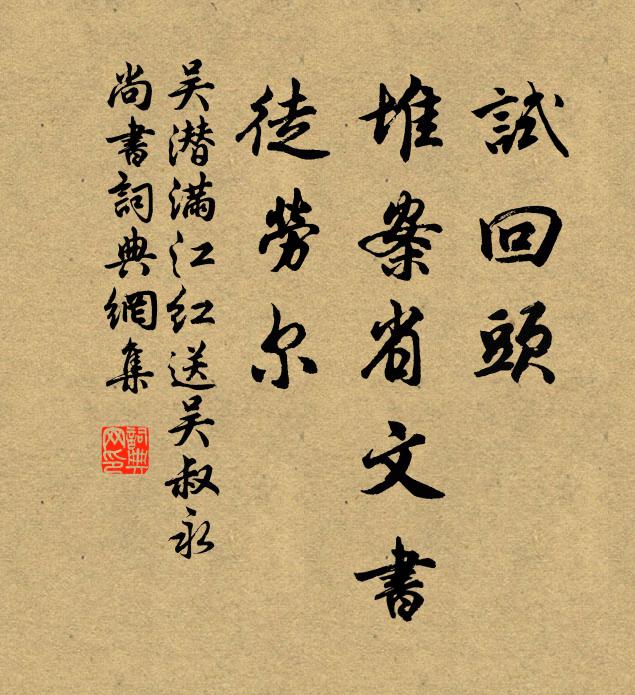 試回頭
堆案省文書
徒勞尔
吴潜满江红送吴叔永
尚書詞典網集
詞典网印